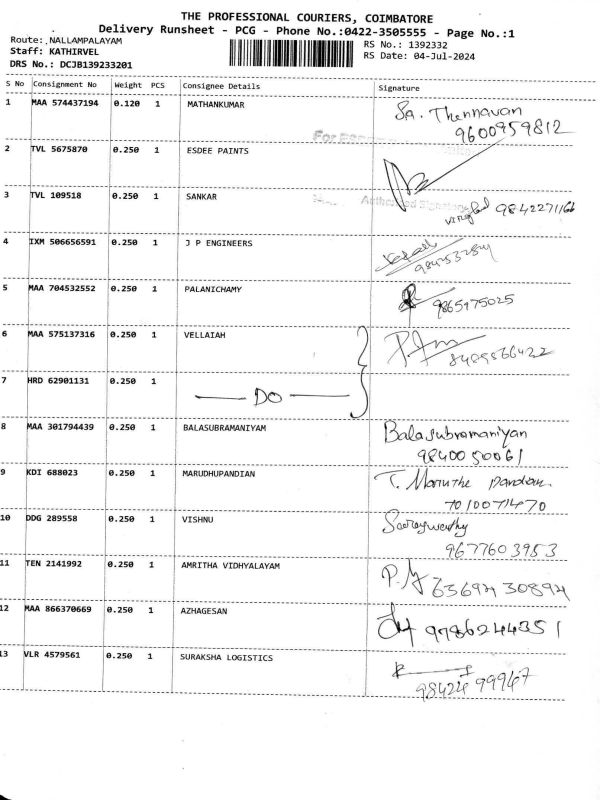 THE PROFESSIONAL COURIERS, COIMBATORE
Delivery Runsheet - PCG - Phone No.:0422-3505555 - Page No.:1
Route: NALLAMPALAYAM
Staff: KATHIRVEL
DRS No.: DCJB139233201
RS No.: 1392332
RS Date: 04-Jul-2024
S No Consignment No Weight PCS Consignee Details Signature
1 MAA 574437194 0.120 1 MATHANKUMAR Sa. Thennavan
9600959812
For
2 TVL 5675870 0.250 1 ESDEE PAINTS
Authorised Signatory
3 TVL 109518 0.250 1 SANKAR 9842271166
4 IXM 506656591 0.250 1 J P ENGINEERS
5 MAA 704532552 0.250 1 PALANICHAMY 9865975025
6 MAA 575137316 0.250 1 VELLAIAH
8489866422
7 HRD 62901131 0.250 1 DO
8 MAA 301794439 0.250 1 BALASUBRAMANIYAM Balasubramaniyan
9840050061
9 KDI 688023 0.250 1 MARUDHUPANDIAN T. Maruthe Pandian
7010071470
10 DDG 289558 0.250 1 VISHNU
9677603953
11 TEN 2141992 0.250 1 AMRITHA VIDHYALAYAM 6369430894
12 MAA 866370669 0.250 1 AZHAGESAN 9786244351
13 VLR 4579561 0.250 1 SURAKSHA LOGISTICS
9842499947